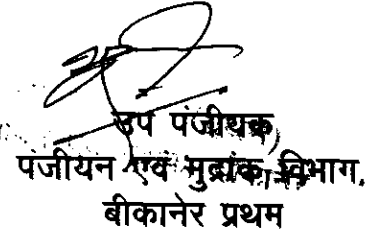 उप पंजीयक,
पंजीयन एवं मुद्रांक विभाग,
बीकानेर प्रथम